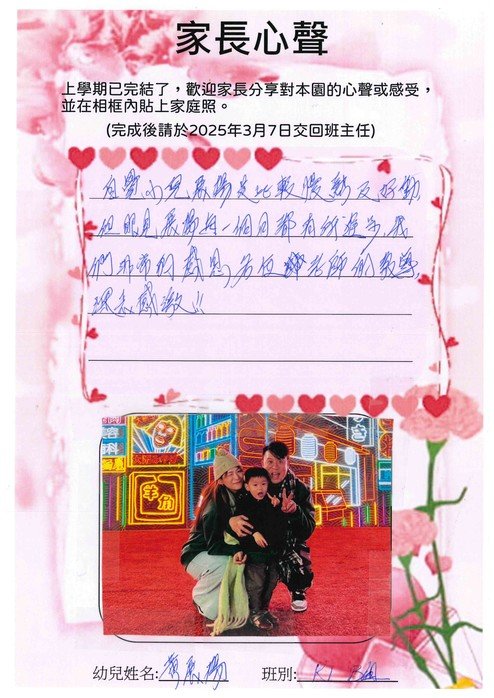 家長心聲
上學期已完結了，歡迎家長分享對本園的心聲或感受，
並在相框內貼上家庭照。
(完成後請於2025年3月7日交回班主任)
自覺小兒晨揚是比較慢熱及好動
但眼見晨揚每一個月都有所進步，我
們非常的感恩，各位老師的教導
深表感激!!
羊角
幼兒姓名: 晨揚
班別: K1